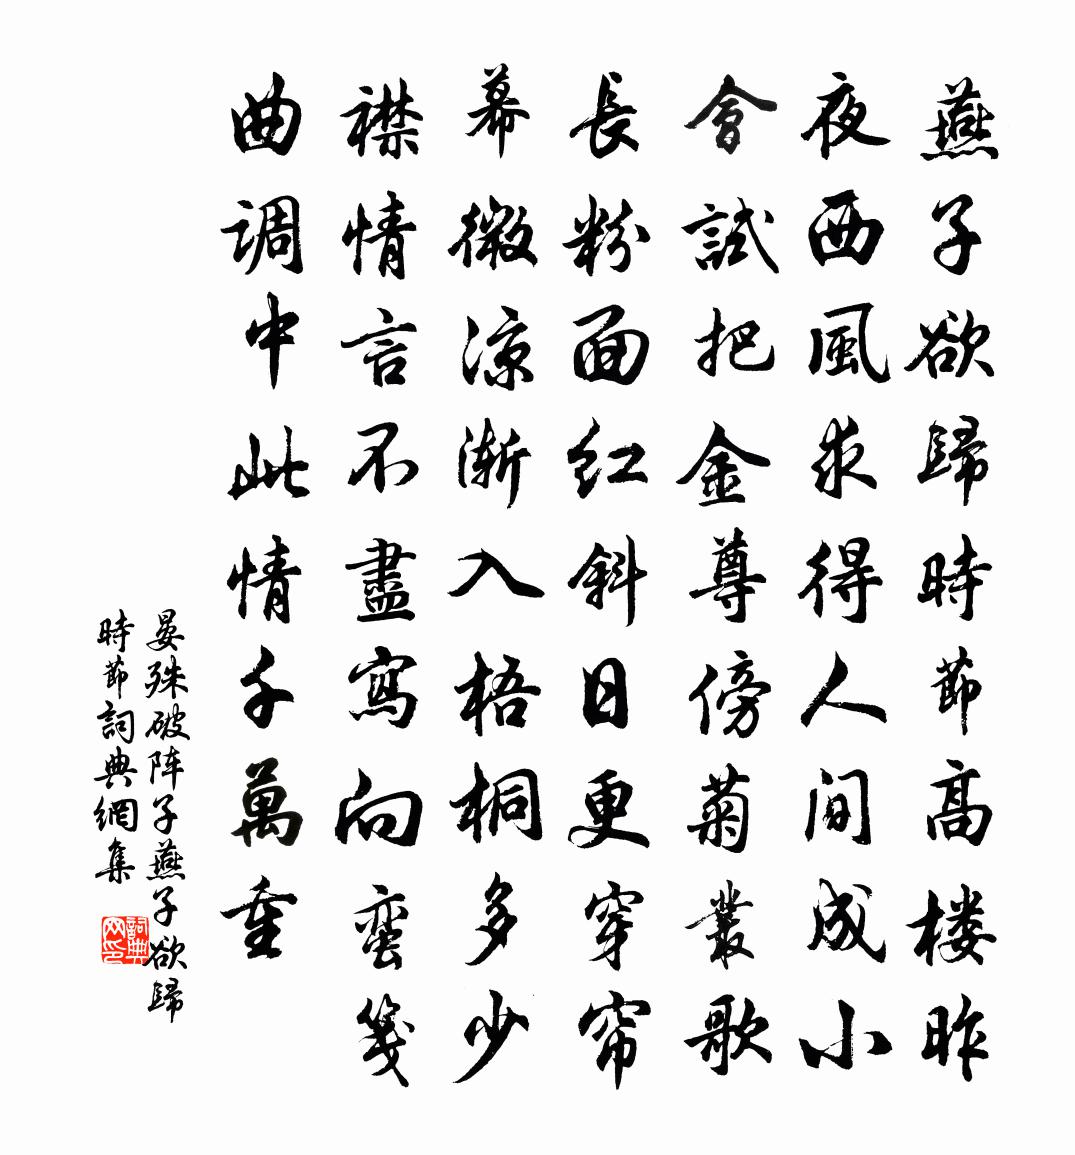 燕子欲歸時節高楼昨
夜西風求得人間成小
會試把金尊傍菊叢歌
長粉面红斜日更穿帘
幕微涼漸入梧桐多少
襟情言不盡寫向蛮箋
曲调中此情千萬重
晏殊破阵子燕子欲歸
時節詞典網集
詞典网印